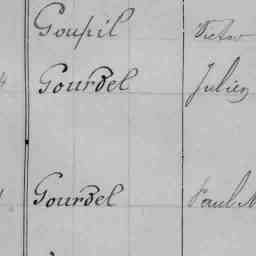 Goupil Victor
Gourdel Julien
Gourdel Paul